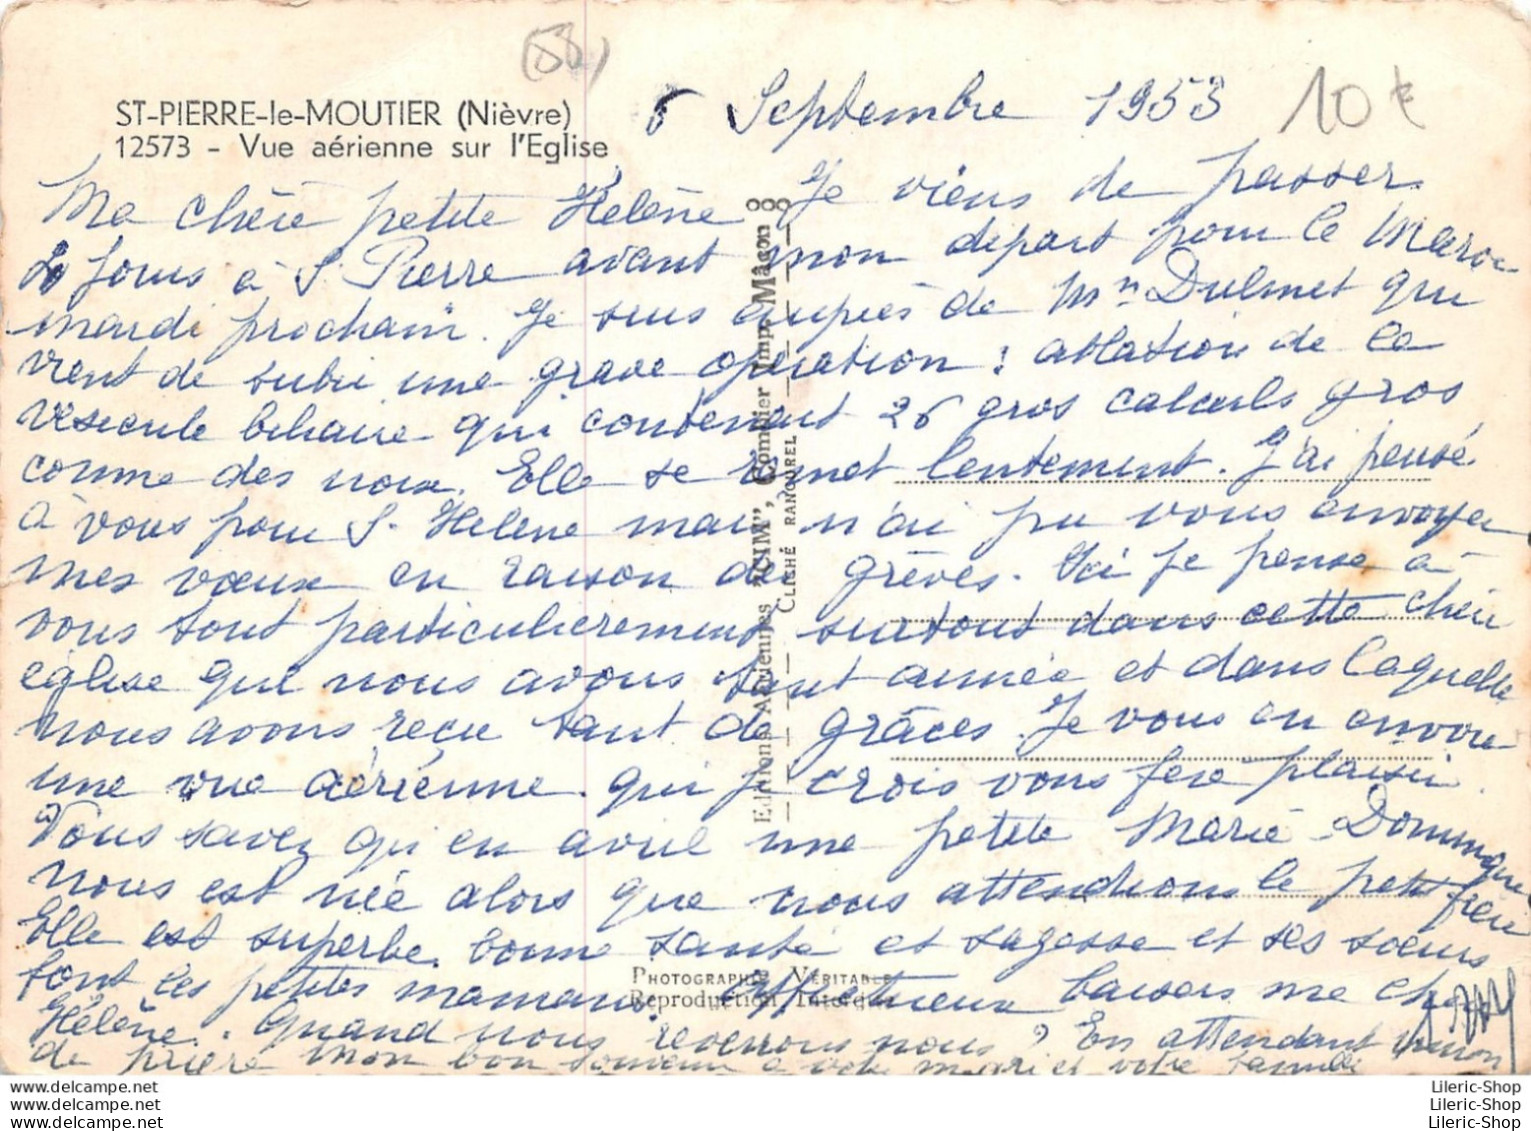 (58)
ST-PIERRE-le-MOUTIER (Nièvre)
12573 - Vue aérienne sur l'Eglise
6 Septembre 1953
10 €
Ma chère petite Hélène Je viens de passer
jours à S. Pierre avant mon départ pour le Maroc
mardi prochain. Je suis auprès de Mme Dulmet qui
vient de subir une grave opération : ablation de la
vésicule biliaire qui contenait 26 gros calculs gros
comme des noix. Elle se remet lentement. J'ai pensé
à vous pour S. Hélène mais n'ai pu vous envoyer
mes vœux en raison des grèves. Ici je pense à
vous tout particulièrement surtout dans cette chère
église que nous avons tant aimée et dans laquelle
nous avons reçu tant de grâces. Je vous en envoie
une vue aérienne qui je crois vous fera plaisir.
Vous savez qu'en avril une petite Marie Dominique
nous est née alors que nous attendions le petit frère
Elle est superbe, bonne santé et sagesse et ses sœurs
font les petites mamans. Affectueux baisers ma chère
Hélène. Quand nous reverrons nous ? En attendant union
de prière mon bon souvenir à votre mari et votre famille
Editions Aériennes "CIM", Combier Imp. Mâcon
CLICHÉ RANCUREL
PHOTOGRAPHIE VÉRITABLE
Reproduction Interdite
Lileric-Shop
Lileric-Shop
Lileric-Shop
www.delcampe.net
www.delcampe.net
www.delcampe.net